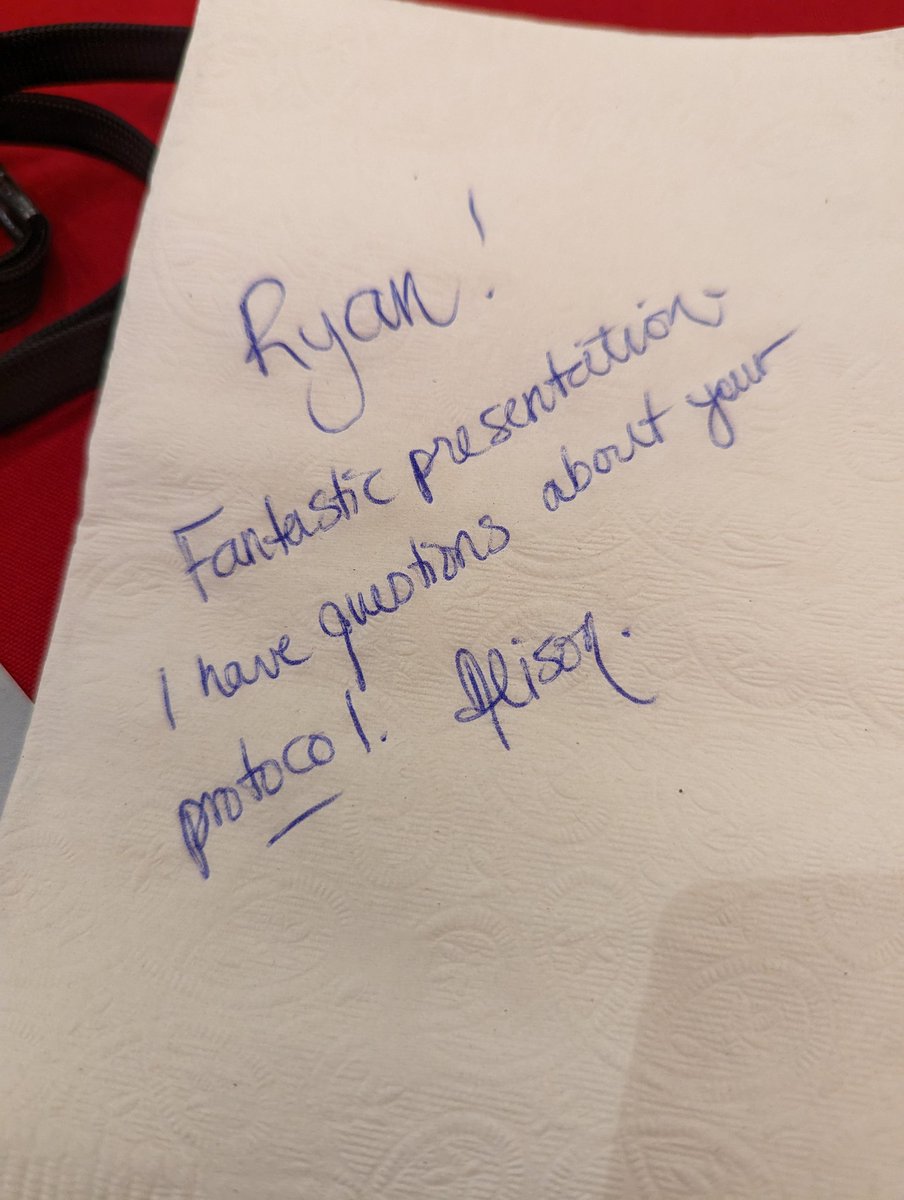 Ryan!
Fantastic presentation.
I have questions about your
protocol. Alison.